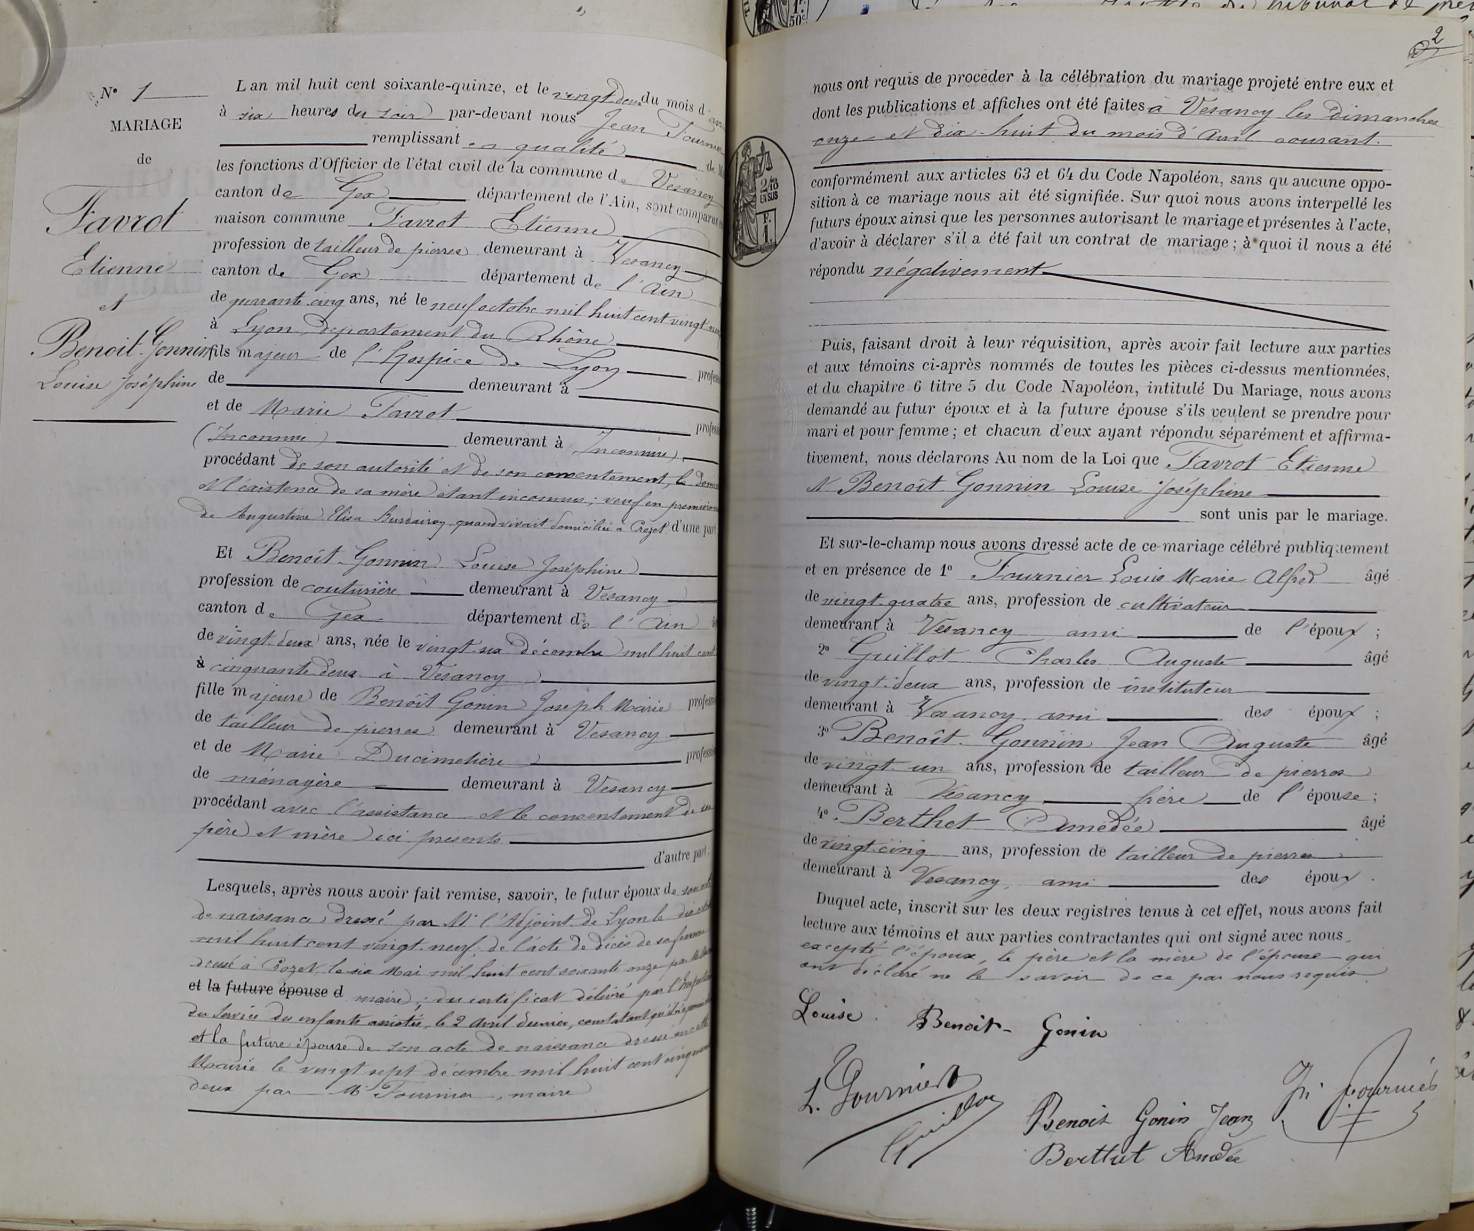 N° 1
MARIAGE
de
Favrot
Etienne
et
Benoît-Gonnin
Louise Joséphine
L'an mil huit cent soixante-quinze, et le vingt deux du mois d'
à six heures du soir par-devant nous Jean Fournier
remplissant en qualité de
les fonctions d'Officier de l'état civil de la commune de Vesancy
canton de Gex département de l'Ain, sont comparus
maison commune Favrot Etienne
profession de tailleur de pierres demeurant à Vesancy
canton de Gex département de l'Ain
de quarante cinq ans, né le neuf octobre mil huit cent vingt neuf
à Lyon département du Rhône
fils majeur de l'Hospice de Lyon profes
de demeurant à
et de Marie Favrot profes
(Inconnue) demeurant à Inconnue
procédant de son autorité et de son consentement, le dom
et l'existence de sa mère étant inconnus; veuf en premières
de Augustine Elisa quand vivait domiciliée à Crozet d'une part
Et Benoît-Gonnin Louise Joséphine
profession de couturière demeurant à Vesancy
canton de Gex département de l'Ain
de vingt deux ans, née le vingt six décembre mil huit cent
à cinquante deux à Vesancy
fille majeure de Benoît Gonin Joseph Marie profess
de tailleur de pierres demeurant à Vesancy
et de Marie Ducimetière profess
de ménagère demeurant à Vesancy
procédant avec l'assistance et le consentement de ses
père et mère ici présents
d'autre part.
Lesquels, après nous avoir fait remise, savoir, le futur époux de son acte
de naissance dressé par Mr l'Adjoint de Lyon le dix octobre
mil huit cent vingt-neuf, de l'acte de décès de sa femme
dressé à Crozet le six Mai mil huit cent soixante onze par
et la future épouse d maire; du certificat délivré par l'Inspecteur
du Service des enfants assistés, le 2 avril dernier, constatant
et la future épouse de son acte de naissance dressé en cette
Mairie le vingt sept décembre mil huit cent cinquante
deux par Mr Fournier, maire
2
nous ont requis de procéder à la célébration du mariage projeté entre eux et
dont les publications et affiches ont été faites à Vesancy les Dimanches
onze et dix-huit du mois d'avril courant.
conformément aux articles 63 et 64 du Code Napoléon, sans qu'aucune oppo-
sition à ce mariage nous ait été signifiée. Sur quoi nous avons interpellé les
futurs époux ainsi que les personnes autorisant le mariage et présentes à l'acte,
d'avoir à déclarer s'il a été fait un contrat de mariage; à quoi il nous a été
répondu négativement
Puis, faisant droit à leur réquisition, après avoir fait lecture aux parties
et aux témoins ci-après nommés de toutes les pièces ci-dessus mentionnées,
et du chapitre 6 titre 5 du Code Napoléon, intitulé Du Mariage, nous avons
demandé au futur époux et à la future épouse s'ils veulent se prendre pour
mari et pour femme; et chacun d'eux ayant répondu séparément et affirma-
tivement, nous déclarons Au nom de la Loi que Favrot Etienne
et Benoît Gonnin Louise Joséphine
sont unis par le mariage.
Et sur-le-champ nous avons dressé acte de ce mariage célébré publiquement
et en présence de 1° Fournier Louis Marie Alfred âgé
de vingt-quatre ans, profession de cultivateur
demeurant à Vesancy ami de l'époux;
2° Guillot Charles Auguste âgé
de vingt-deux ans, profession de instituteur
demeurant à Vesancy, ami des époux;
3° Benoît-Gonnin Jean Auguste âgé
de vingt un ans, profession de tailleur de pierres
demeurant à Vesancy frère de l'épouse;
4° Berthet Amédée âgé
de vingt-cinq ans, profession de tailleur de pierres
demeurant à Vesancy, ami des époux.
Duquel acte, inscrit sur les deux registres tenus à cet effet, nous avons fait
lecture aux témoins et aux parties contractantes qui ont signé avec nous
excepté l'époux, le père et la mère de l'épouse qui
ont déclaré ne le savoir de ce par nous requis
Louise Benoit-Gonin
L. Fournier
Guillot
Benoit Gonin Jean
Berthet Amédée
Jn Fournier